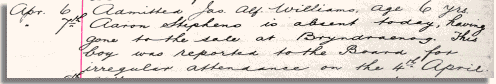 Apr. 6 Admitted Jas. Alf. Williams, age 6 yrs.
7th Aaron Stephens is absent today, having
gone to the sale at Bryndraenog. This
boy was reported to the Board for
irregular attendance on the 4th April.